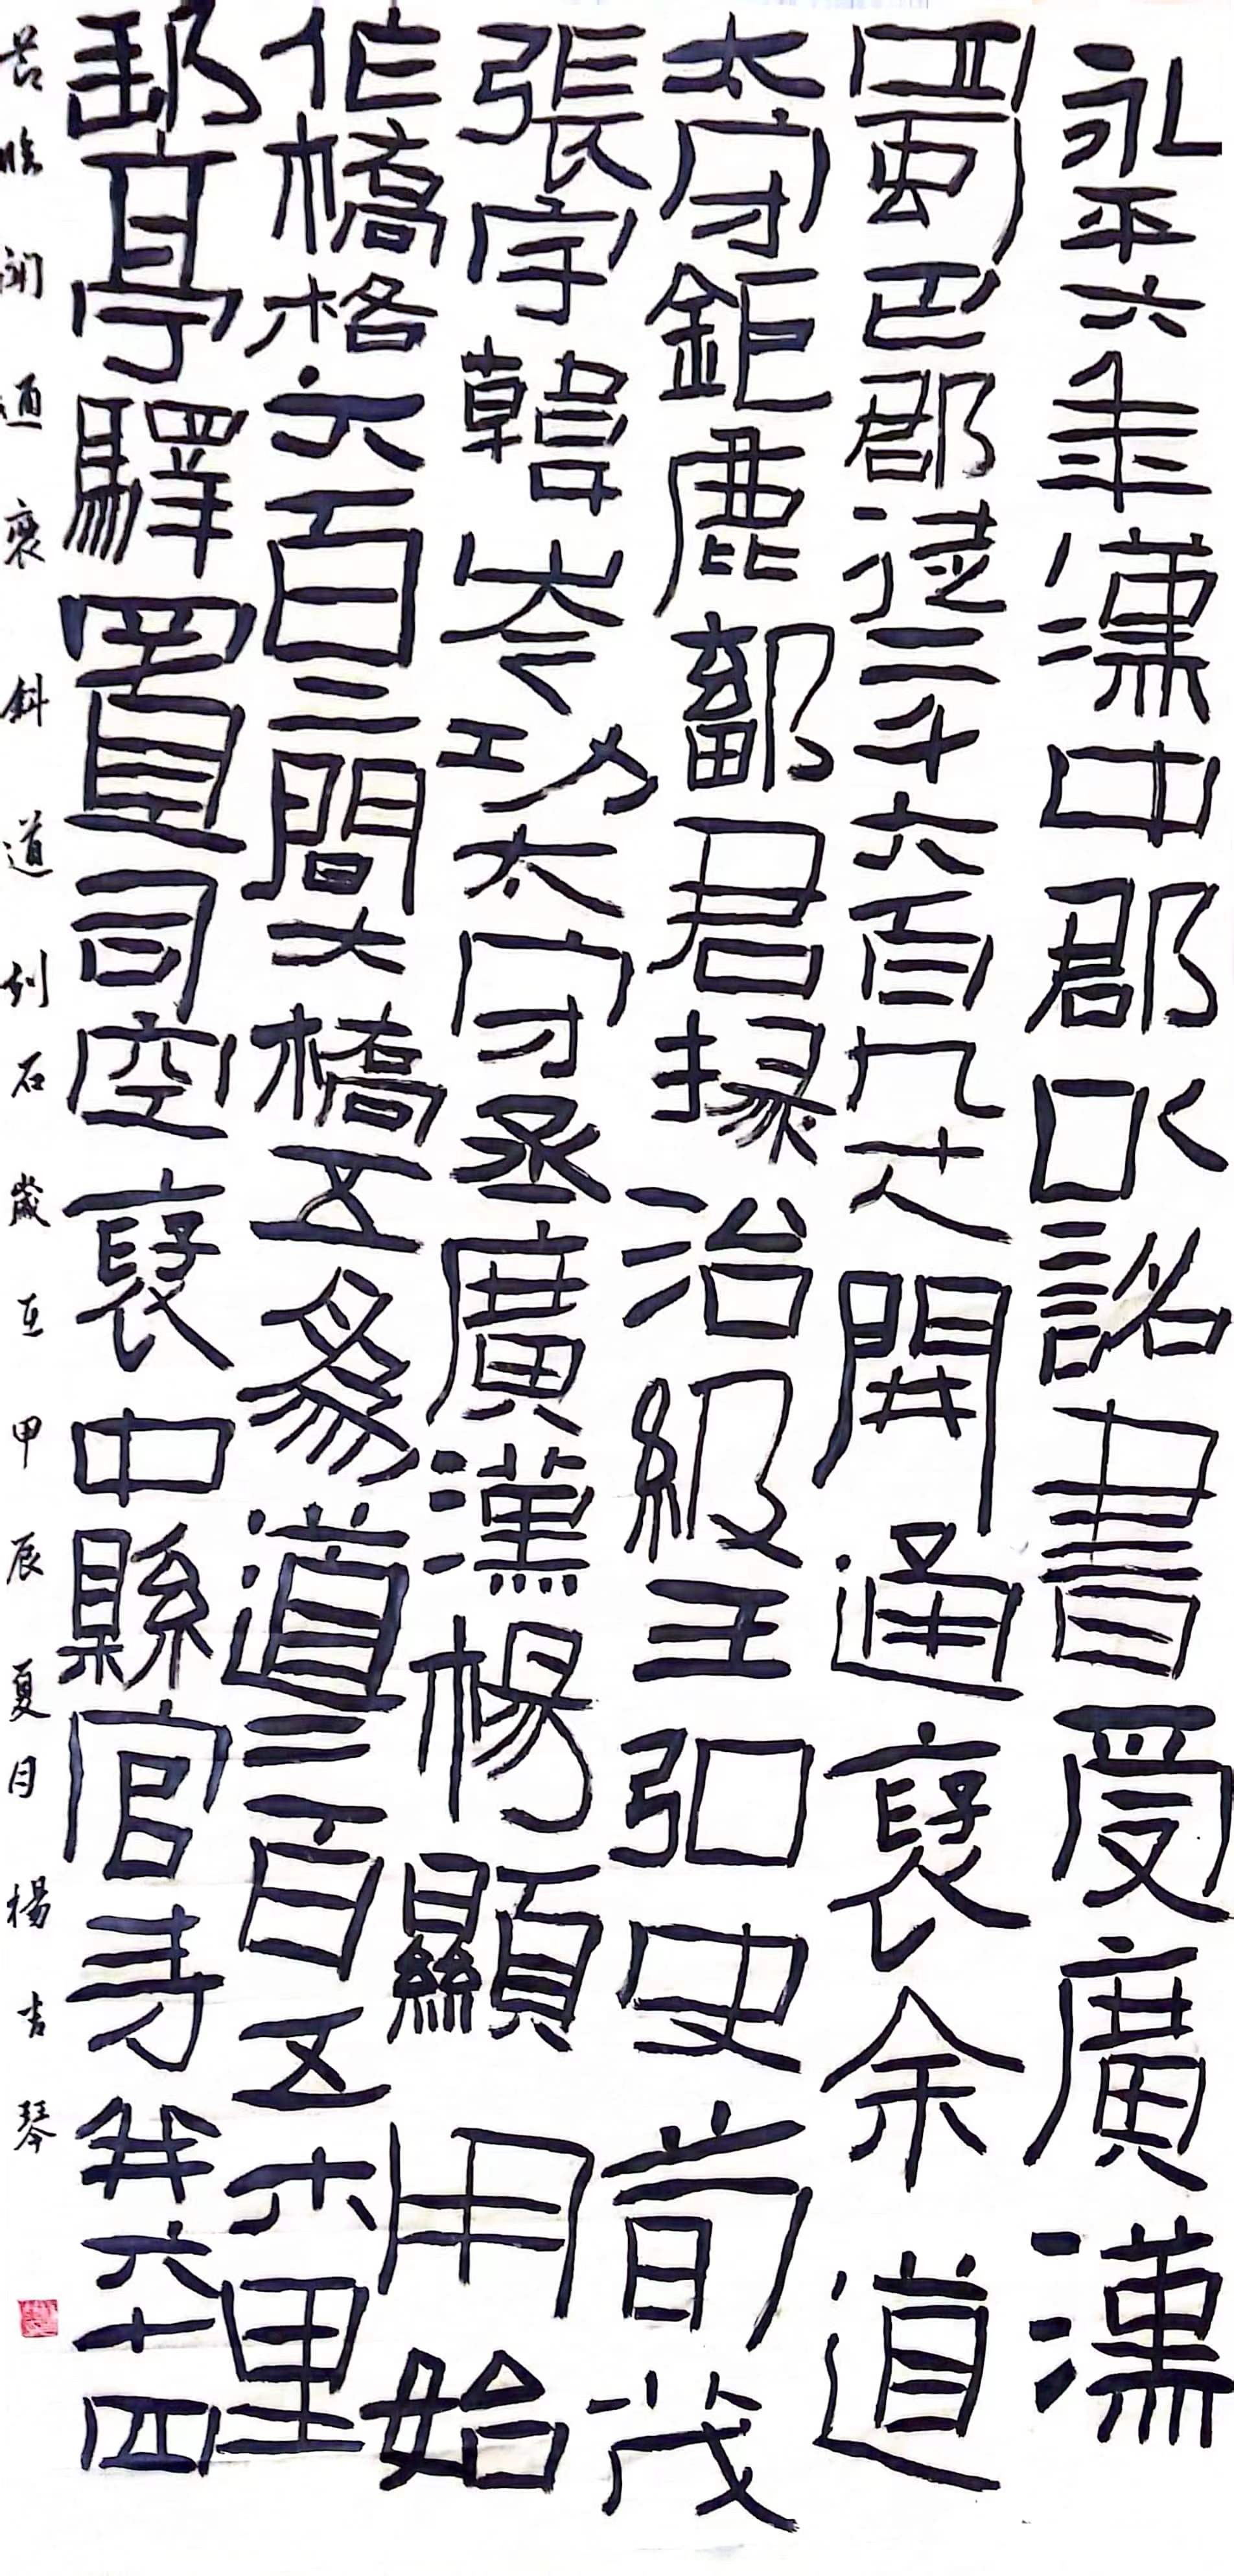 永平六年漢中郡以詔書受廣漢
蜀巴郡徒二千六百九十人開通褒余道
太守鉅鹿鄐君掾治級王弘史荀茂
張宇韓岑功太守丞廣漢楊顯用始
作橋格六百二間大橋五為道二百五十八里
郵亭驛置司空褒中縣官寺并六十四
臨開通褒斜道刻石歲在甲辰夏月楊吉琴